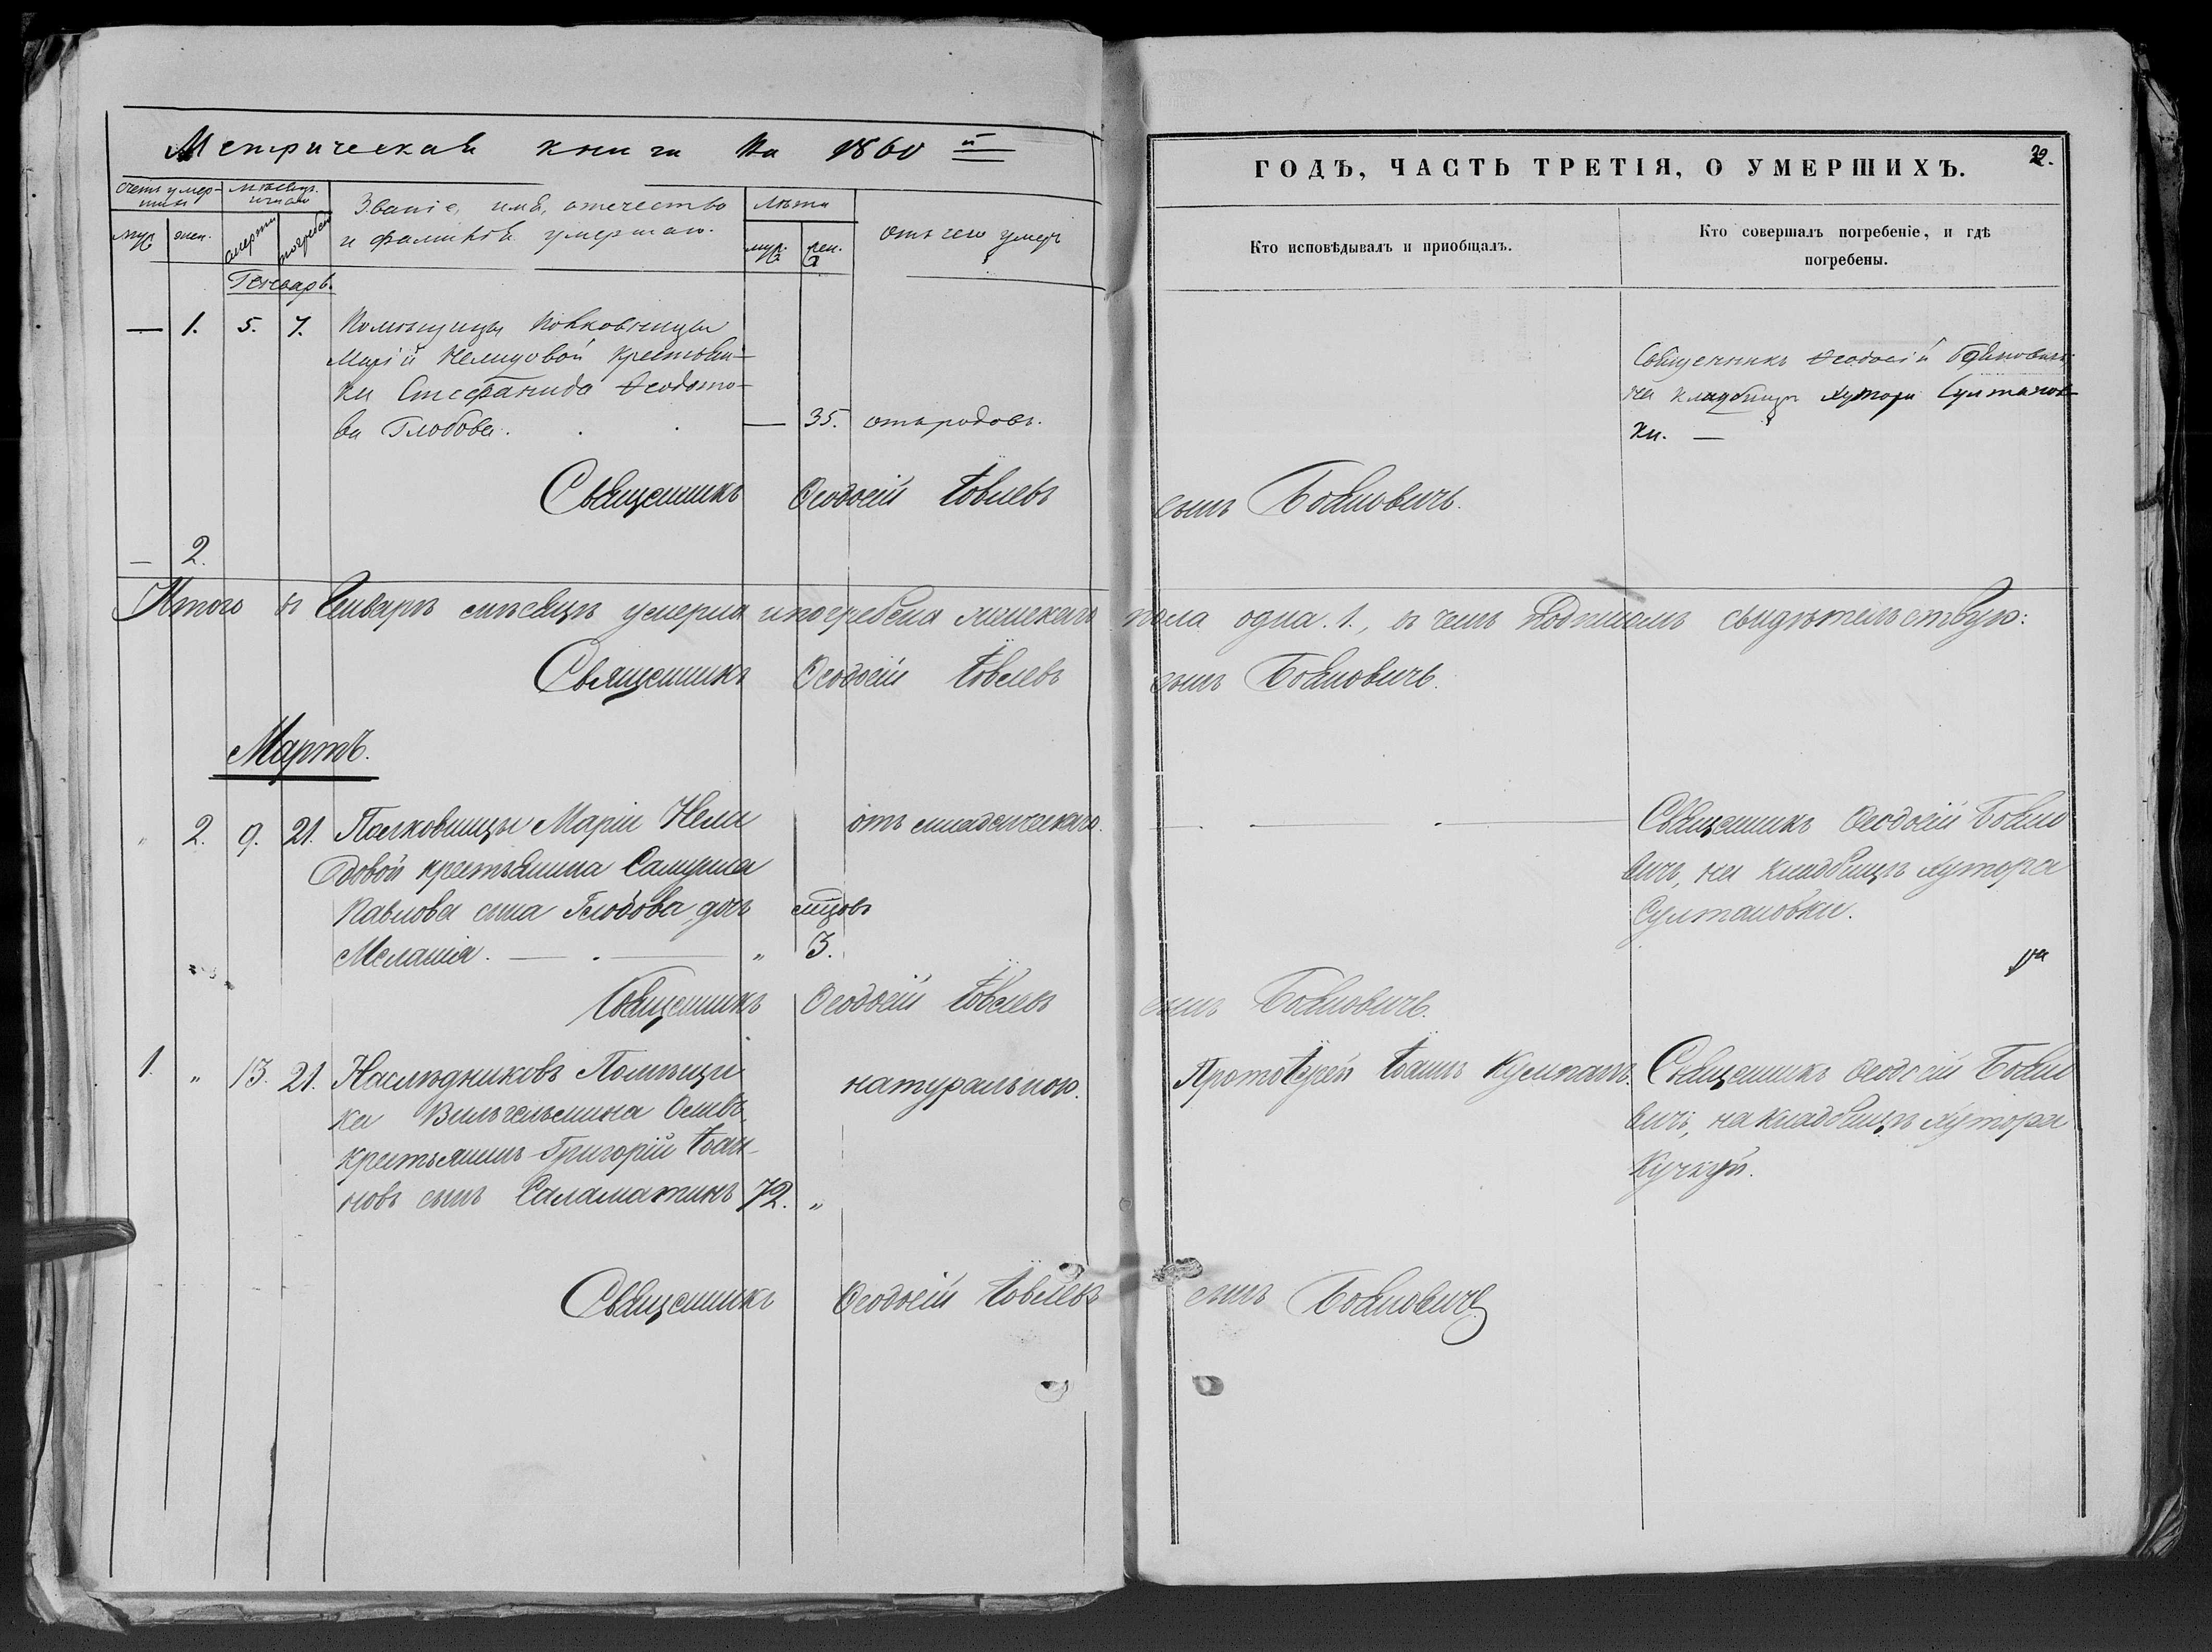 Метрическая книга на 1860й
ГОДЪ, ЧАСТЬ ТРЕТІЯ, О УМЕРШИХЪ.
22.
Счетъ умер-
шихъ
Мѣсяцъ
и число
Званіе, имя, отечество
и фамилія умершаго.
Лѣта
Отъ чего умеръ
муж.
жен.
смерти
погребен.
муж.
жен.
Кто исповѣдывалъ и пріобщалъ.
Кто совершалъ погребеніе, и гдѣ
погребены.
Генварь.
— 1. 5. 7. Помѣщицы Полковницы
Маріи Нелидовой крестьян-
ка Стефанида Ѳеодото-
ва Глобова. — 35. отъ родовъ.
Священникъ Ѳеодосій Бояновичъ,
на кладбищѣ хутора Султанов-
ки. —
Священникъ Ѳеодосій Іовлевъ сынъ Бояновичъ.
— 2.
Итого въ Генварѣ мѣсяцѣ умерла и погребена женскаго пола одна. 1., въ чемъ подписомъ свидѣтельствую:
Священникъ Ѳеодосій Іовлевъ сынъ Бояновичъ.
Мартъ.
" 2. 9. 21. Полковницы Маріи Нели
довой крестьянина Самуила
Павлова сына Глобова дочь
Меланія. — . — " мѣсяцовъ
3.
отъ младенческаго.
Священникъ Ѳеодосій Бояно
вичъ, на кладбищѣ хутора
Султановки.
Священникъ Ѳеодосій Іовлевъ сынъ Бояновичъ.
1. " 13. 21. Наслѣдниковъ Помѣщи
ка Вильгельмина
крестьянинъ Григорій Іоан-
новъ сынъ Саламатинъ 72. "
натуральною.
Протоіерей Іоаннъ
Священникъ Ѳеодосій Бояно
вичъ, на кладбищѣ хутора
Кучкуй.
Священникъ Ѳеодосій Іовлевъ сынъ Бояновичъ